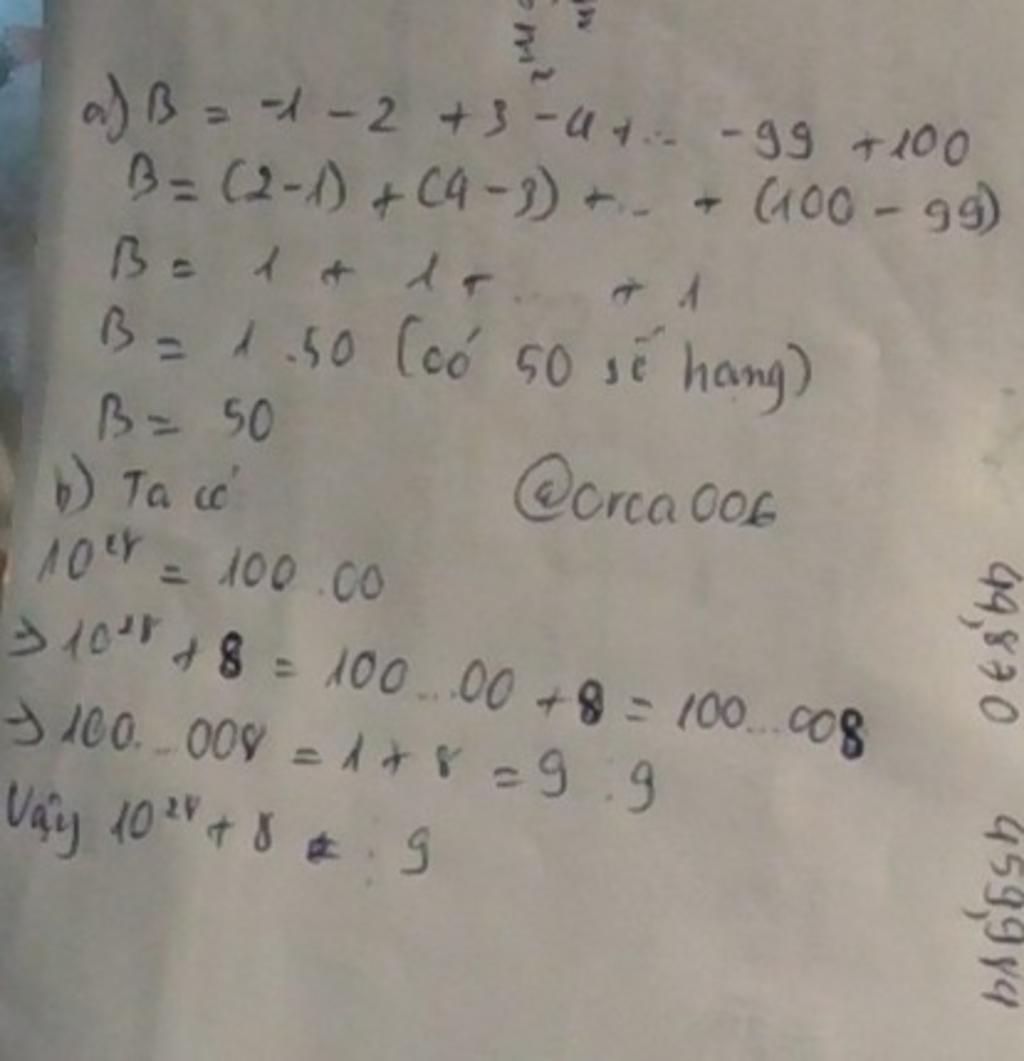 a) B = -1 - 2 + 3 - 4 + ... - 99 + 100
B = (2-1) + (4-3) + ... + (100 - 99)
B = 1 + 1 + ... + 1
B = 1.50 (có 50 số hạng)
B = 50
b) Ta có
@Orca006
10²⁸ = 100...00
⇒ 10²⁸ + 8 = 100...00 + 8 = 100...008
⇒ 100...008 = 1 + 8 = 9 ⋮ 9
Vậy 10²⁸ + 8 ⋮ 9
44,870
459,984